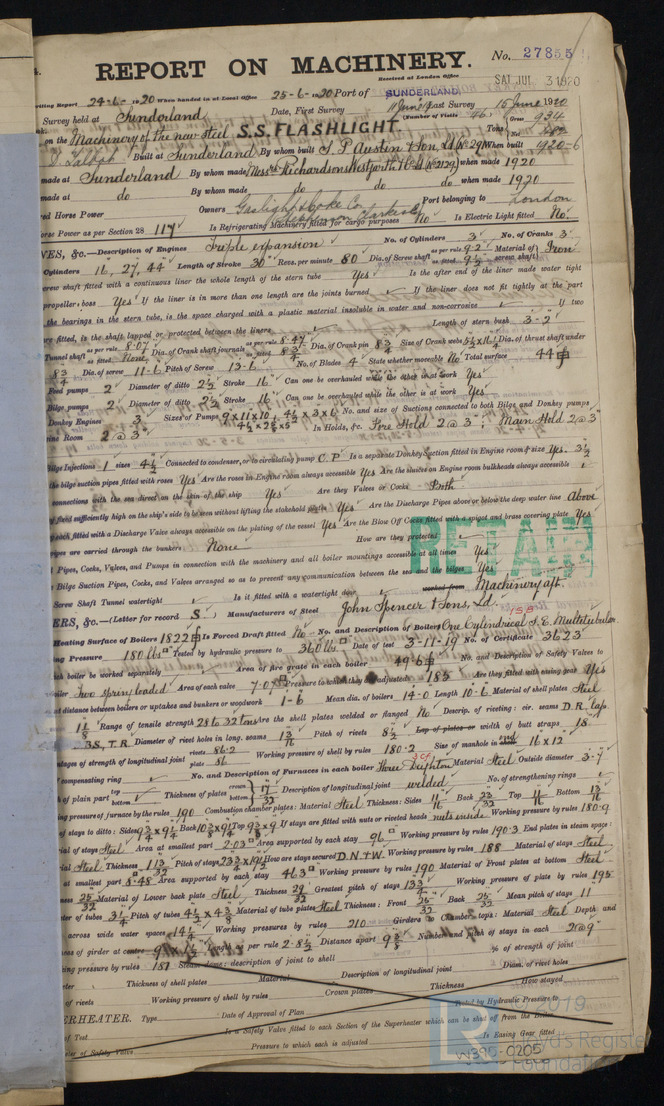 REPORT ON MACHINERY.
No. 27855
Received at London Office
SAT. JUL. 3 1920
Writing Report 24-6-1920 When handed in at Local Office 25-6-1920 Port of SUNDERLAND
Survey held at Sunderland Date, First Survey Last Survey 16 June 1920
(Number of Visits 46)
on the Machinery of the new steel S.S. FLASHLIGHT Tons Gross 934 Net
Built at Sunderland By whom built S. P. Austin & Son, Ld When built 1920-6
made at Sunderland By whom made Messrs Richardsons Westgarth & Co Ld (No 2129) when made 1920
made at do By whom made do do when made 1920
ed Horse Power Owners Gaslight & Coke Co. Port belonging to London
orse Power as per Section 28 117 Is Refrigerating Machinery fitted for cargo purposes No Is Electric Light fitted No.
VES, &c.—Description of Engines Triple expansion No. of Cylinders 3 No. of Cranks 3
Cylinders 16, 27, 44" Length of Stroke 30" Revs. per minute 80 Dia. of Screw shaft as per rule 9.2 Material of screw shaft Iron
crew shaft fitted with a continuous liner the whole length of the stern tube Yes Is the after end of the liner made water tight
propeller boss Yes If the liner is in more than one length are the joints burned If the liner does not fit tightly at the part
the bearings in the stern tube, is the space charged with a plastic material insoluble in water and non-corrosive If two
ers fitted, is the shaft lapped or protected between the liners Length of stern bush 3-2"
Tunnel shaft as per rule 8.07 as fitted None Dia. of Crank shaft journals as per rule 8.47 as fitted 8¾ Dia. of Crank pin 8¾ Size of Crank webs Dia. of thrust shaft under
8¾ Dia. of screw 11-6 Pitch of Screw 13-6 No. of Blades 4 State whether moveable No Total surface 44
Feed pumps 2 Diameter of ditto 2½ Stroke 16" Can one be overhauled while the other is at work Yes
Bilge pumps 2 Diameter of ditto 2½ Stroke 16" Can one be overhauled while the other is at work Yes
Donkey Engines 3 Sizes of Pumps 9 x 11 x 10, 4½ x 3 x 6 No. and size of Suctions connected to both Bilge and Donkey pumps
ine Room 2 @ 3" In Holds, &c. Fore Hold 2 @ 3"; Main Hold 2 @ 3"
Bilge Injections 1 sizes 4½ Connected to condenser, or to circulating pump C.P. Is a separate Donkey Suction fitted in Engine room & size Yes. 3½
the bilge suction pipes fitted with roses Yes Are the roses in Engine room always accessible Yes Are the sluices on Engine room bulkheads always accessible
connections with the sea direct on the skin of the ship Yes Are they Valves or Cocks Both
fixed sufficiently high on the ship's side to be seen without lifting the stokehold plates Yes Are the Discharge Pipes above or below the deep water line Above
each fitted with a Discharge Valve always accessible on the plating of the vessel Yes Are the Blow Off Cocks fitted with a spigot and brass covering plate Yes
ipes are carried through the bunkers None How are they protected
Pipes, Cocks, Valves, and Pumps in connection with the machinery and all boiler mountings accessible at all times Yes
Bilge Suction Pipes, Cocks, and Valves arranged so as to prevent any communication between the sea and the bilges Yes
RETAIN
Screw Shaft Tunnel watertight Is it fitted with a watertight door worked from Machinery aft
ERS, &c.—(Letter for record S) Manufacturers of Steel John Spencer & Sons, Ld
Heating Surface of Boilers 1822 Is Forced Draft fitted No No. and Description of Boilers One Cylindrical S.E. Multitubular
ng Pressure 180 lbs Tested by hydraulic pressure to 360 lbs Date of test 3-11-19 No. of Certificate 3623
ch boiler be worked separately Area of fire grate in each boiler 49.6 No. and Description of Safety Valves to
boiler Two spring loaded Area of each valve 7.07 Pressure to which they are adjusted 185 Are they fitted with easing gear Yes
st distance between boilers or uptakes and bunkers or woodwork 1-6 Mean dia. of boilers 14-0 Length 10-6 Material of shell plates Steel
1⅛ Range of tensile strength 28 to 32 tons Are the shell plates welded or flanged No Descrip. of riveting: cir. seams D.R. Lap.
B.S., T.R. Diameter of rivet holes in long. seams Pitch of rivets 8½ Lap of plates or width of butt straps 18
ntages of strength of longitudinal joint rivets 86.2 plate 86 Working pressure of shell by rules 180.2 Size of manhole in shell 16 x 12
f compensating ring No. and Description of Furnaces in each boiler Three Deighton Material Steel Outside diameter 3-7
h of plain part top bottom Thickness of plates crown bottom 17/32 Description of longitudinal joint welded No. of strengthening rings
ing pressure of furnace by the rules 190 Combustion chamber plates: Material Steel Thickness: Sides Back Top Bottom
of stays to ditto: Sides Back Top If stays are fitted with nuts or riveted heads nuts inside Working pressure by rules 180.9
ial of stays Steel Area at smallest part 2.03 Area supported by each stay 96 Working pressure by rules 190.3 End plates in steam space:
ial Steel Thickness Pitch of stays How are stays secured D.N.+W. Working pressure by rules 188 Material of stays Steel
at smallest part 8.48 Area supported by each stay 463 Working pressure by rules 190 Material of Front plates at bottom Steel
ess 25/32 Material of Lower back plate Steel Thickness 29/32 Greatest pitch of stays Working pressure of plate by rules 195
eter of tubes 3¼ Pitch of tubes 4½ x 4⅜ Material of tube plates Steel Thickness: Front 25/32 Back 25/32 Mean pitch of stays 11
across wide water spaces 14¼ Working pressures by rules 210 Girders to Chamber tops: Material Steel Depth and
ess of girder at centre Length as per rule 2-8½ Distance apart 9¾ Number and pitch of stays in each 2 @ 9"
ing pressure by rules 187 Steam dome: description of joint to shell % of strength of joint
eter Thickness of shell plates Material Description of longitudinal joint Diam. of rivet holes
of rivets Working pressure of shell by rules Crown plates Thickness How stayed
ERHEATER. Type Date of Approval of Plan Tested by Hydraulic Pressure to
of Test Is a Safety Valve fitted to each Section of the Superheater which can be shut off from the Boiler
eter of Safety Valve Pressure to which each is adjusted Is Easing Gear fitted
© 2019
Lloyd's Register
Foundation
W395-0205